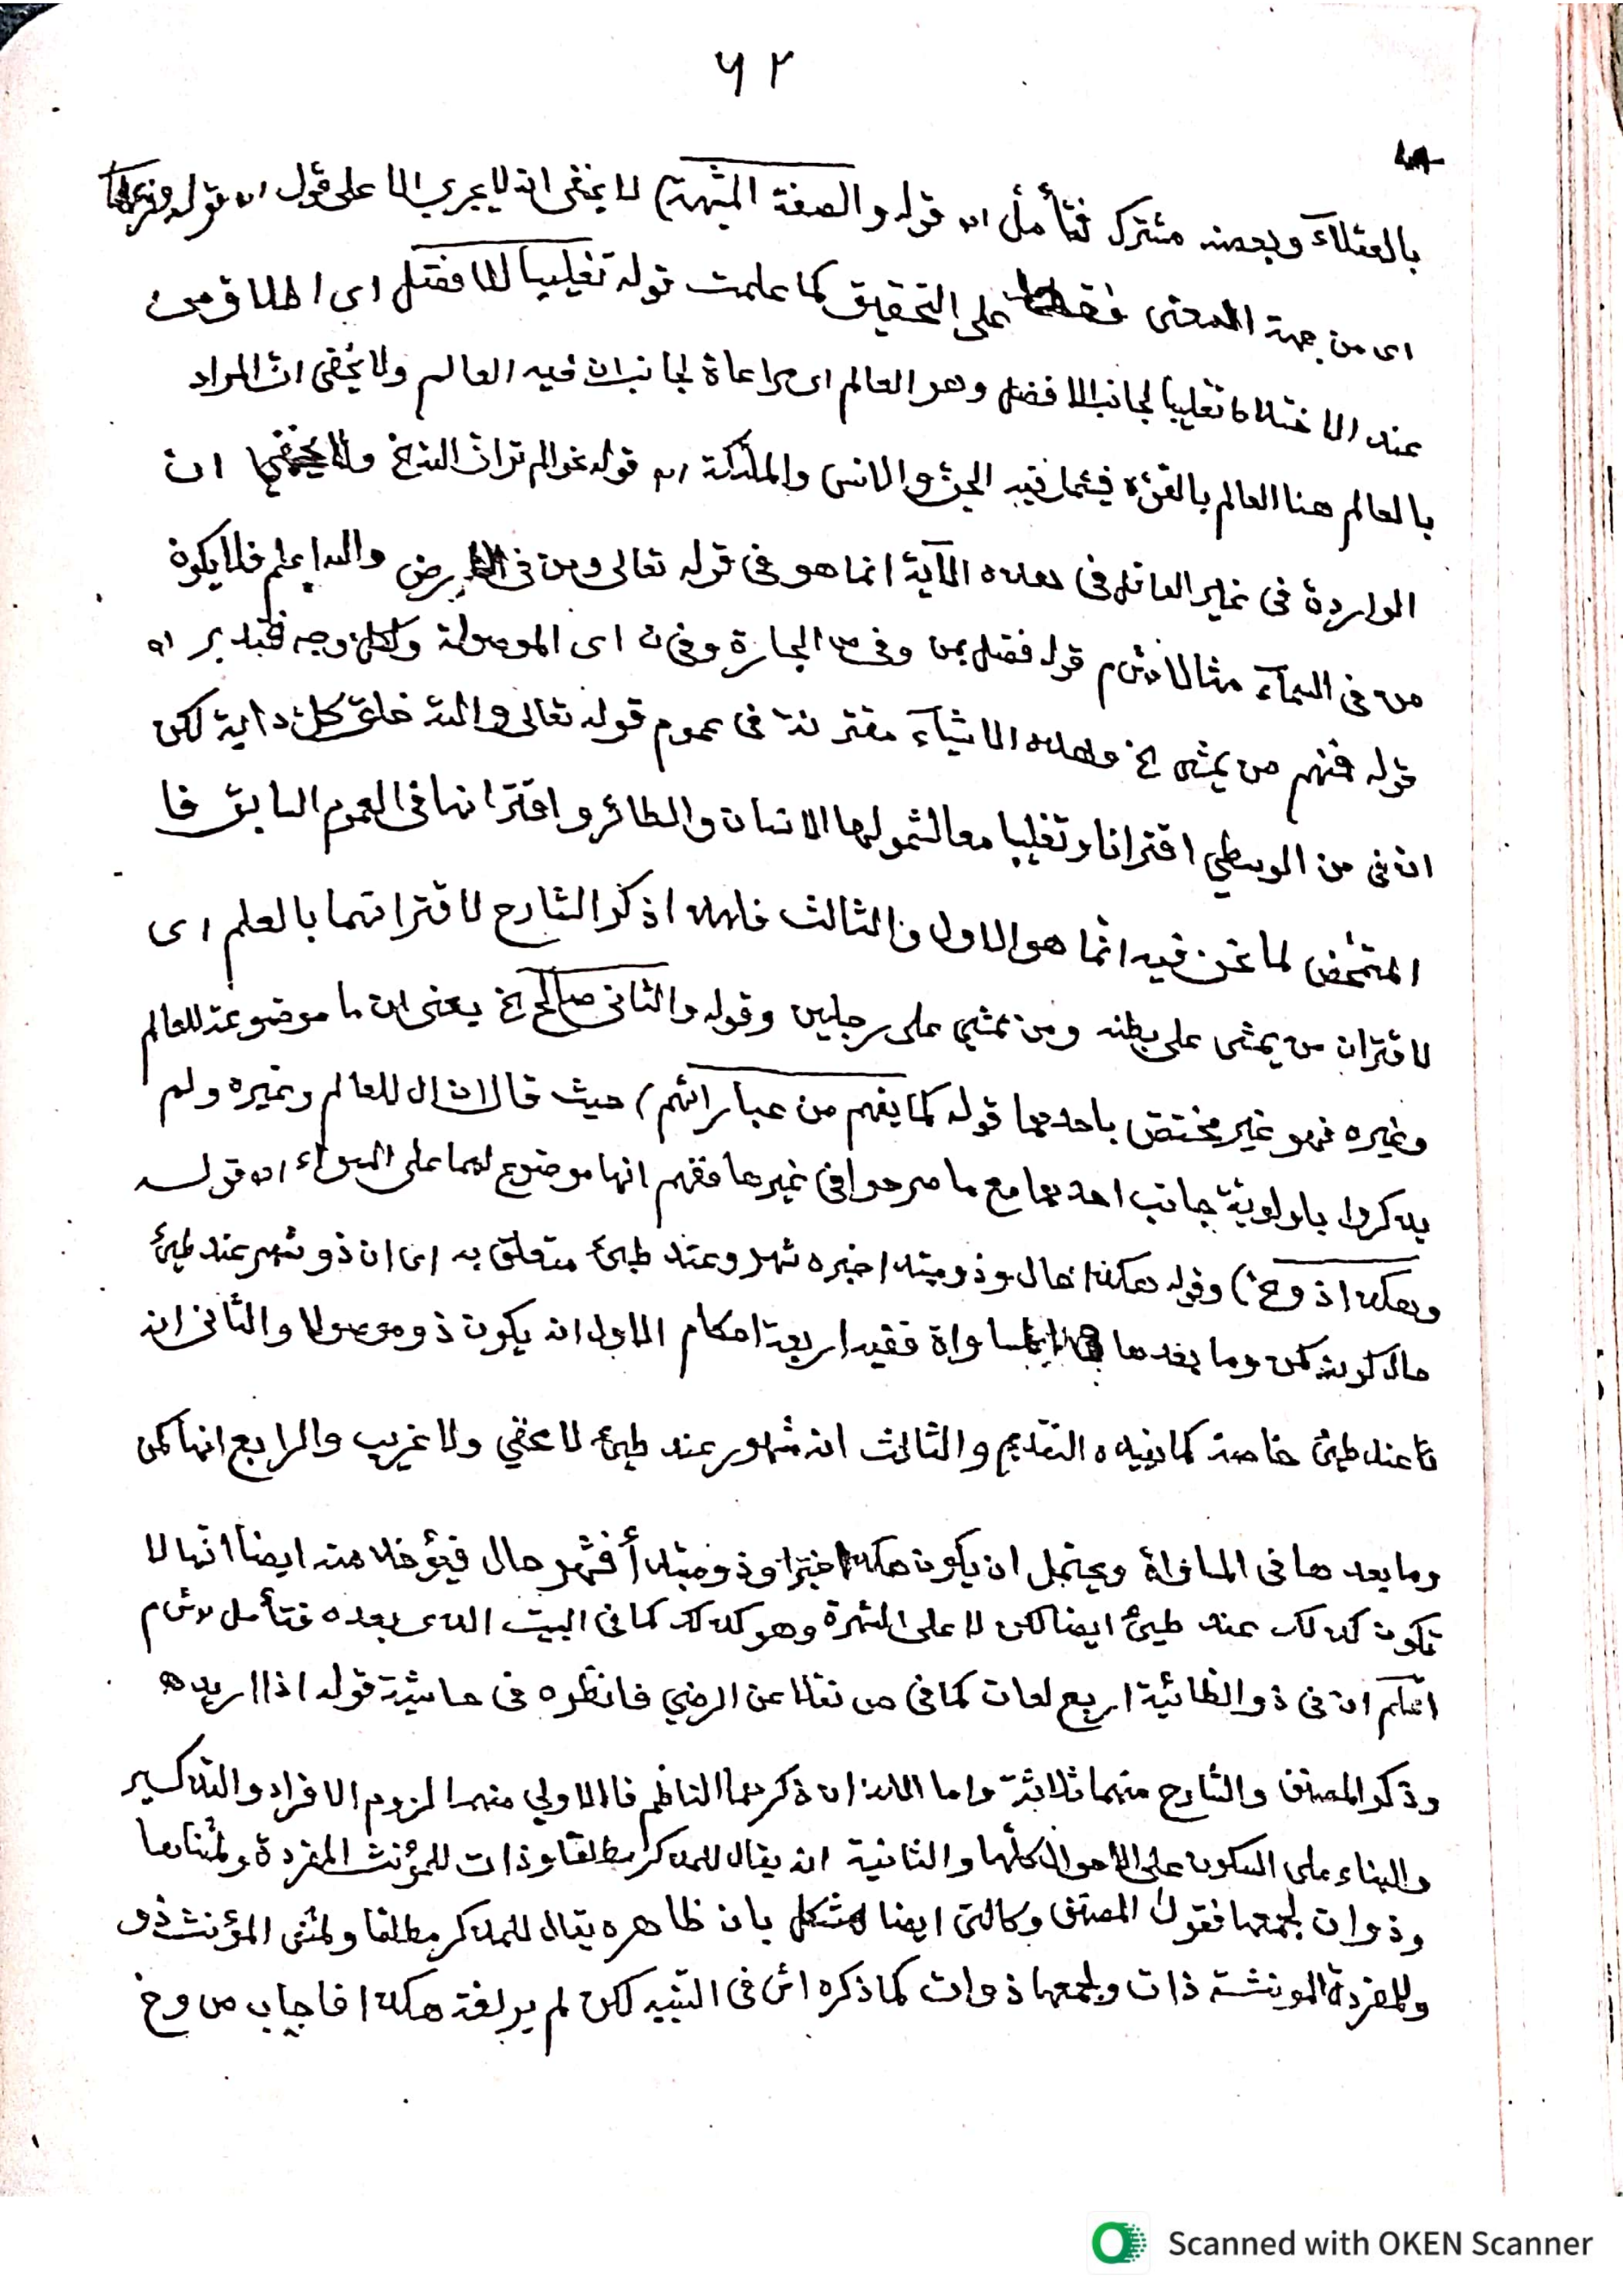 ٦٢
بالعقلاء وبعضه مشترك فتأمل اه قوله والصفة المشبهة) لا يخفى انه لا يجري الا على قول اه قوله
اى من جهة المعنى فقط على التحقيق كما علمت قوله تغليبا للافضل اى اطلاق من
عند الاختلاط تغليبا لجانب الافضل وهو العالم اى مراعاة لجانب ان فيه العالم ولا يخفى ان المراد
بالعالم هنا العالم بالقوة فيشمل فيه الجن والانس والملئكة اه قوله نحو الم تر ان الله الخ ولا يخفى ان
الواردة فى غير العاقل فى هذه الآية انما هو فى قوله تعالى ومن فى الارض والله اعلم فلا يكون
من فى السمآء مثالا ش م قوله فقضل بمن وفى ص الجارة وفى ن اى الموصولة ولكل وجه فتدبر اه
قوله فمنهم من يمشى الخ وهذه الاشيآء مقترنة فى عموم قوله تعالى والله خلق كل دابة لكن
ان فى من الوسطي اقترانا وتغليبا معا لشمولها الانسان والطائر واقترانها فى العموم السابق فا
المتمحض لما نحن فيه انما هو الاول والثالث فلهذا ذكر الشارح لاقترانهما بالعلم اى
لاقتران من يمشى على بطنه ومن يمشي على رجلين وقوله والثانى صالح الخ يعنى ان ما موضوعة للعالم
وغيره فهو غير مختص باحدهما قوله كما يفهم من عباراتهم) حيث قالا ان ال للعالم وغيره ولم
يذكروا باولوية جانب احدهما مع ما صرحوا فى غيرها ففهم انها موضوع لهما على السواء اه قوله
وهكذا ذو الخ) وقوله هكذا حال وذو مبتدا خبره شهر وعند طيئ متعلق به اى ان ذو شهر عند طيئ
حال كونه كمن وما بعدها فى المساواة ففيه اربعة احكام الاول انه يكون ذو موصولا والثانى انه
تا عند طيئ خاصة كما يفيده التقديم والثالث انه مشهور عند طيئ لا مخفي ولا غريب والرابع انها كمن
وما بعدها فى المساواة ويحتمل ان يكون هكذا خبرا وذو مبتدأ فشهر حال فيؤخذ منه ايضا انها لا
تكون كذلك عند طيئ ايضا لكن لا على الشهرة وهو كذلك كما فى البيت الذى بعده فتأمل ش م
اعلم ان فى ذو الطائية اربع لغات كما فى ص نقلا عن الرضي فانظره فى حاشية قوله اذا اريد ه
وذكر المصنف والشارح منهما ثلاثة واما اللذان ذكرهما الناظم فالاولي منهما لزوم الافراد والتذكير
والبناء على السكون على الاحوال كلها والثانية ان يقال للمذكر مطلقا وذات للمؤنث المفردة ولمثناها
وذوات لجمعها فقول المصنف وكالتى ايضا مشكل بان ظاهره يقال للمذكر مطلقا ولمثنى المؤنث ذو
وللمفردة المونثة ذات ولجمعها ذوات كما ذكره اش فى التنبيه لكن لم ير لغة هكذا فاجاب ص وخ
Scanned with OKEN Scanner